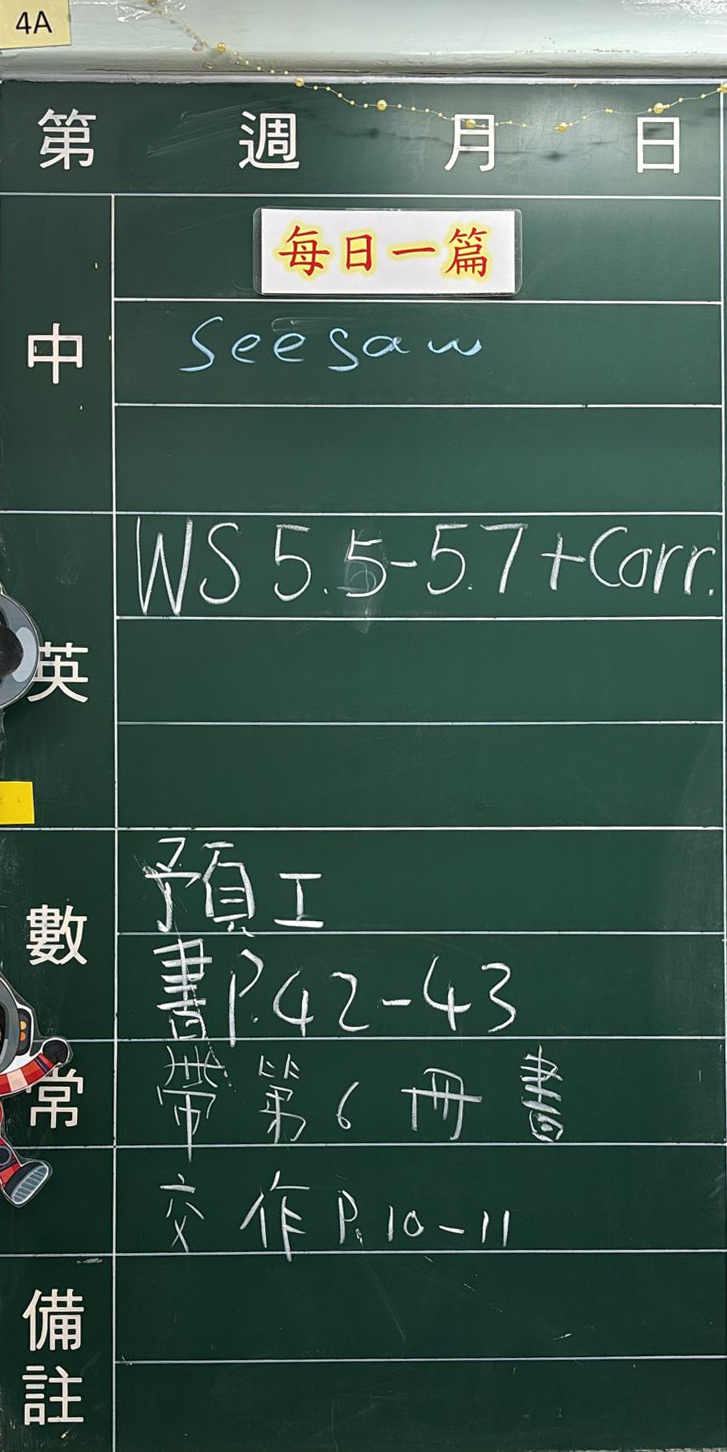 4A
第 週 月 日
每日一篇
中
Seesaw
WS 5.5-5.7+Corr.
英
預工
數
書P.42-43
常
帶第6冊書
交作P.10-11
備註